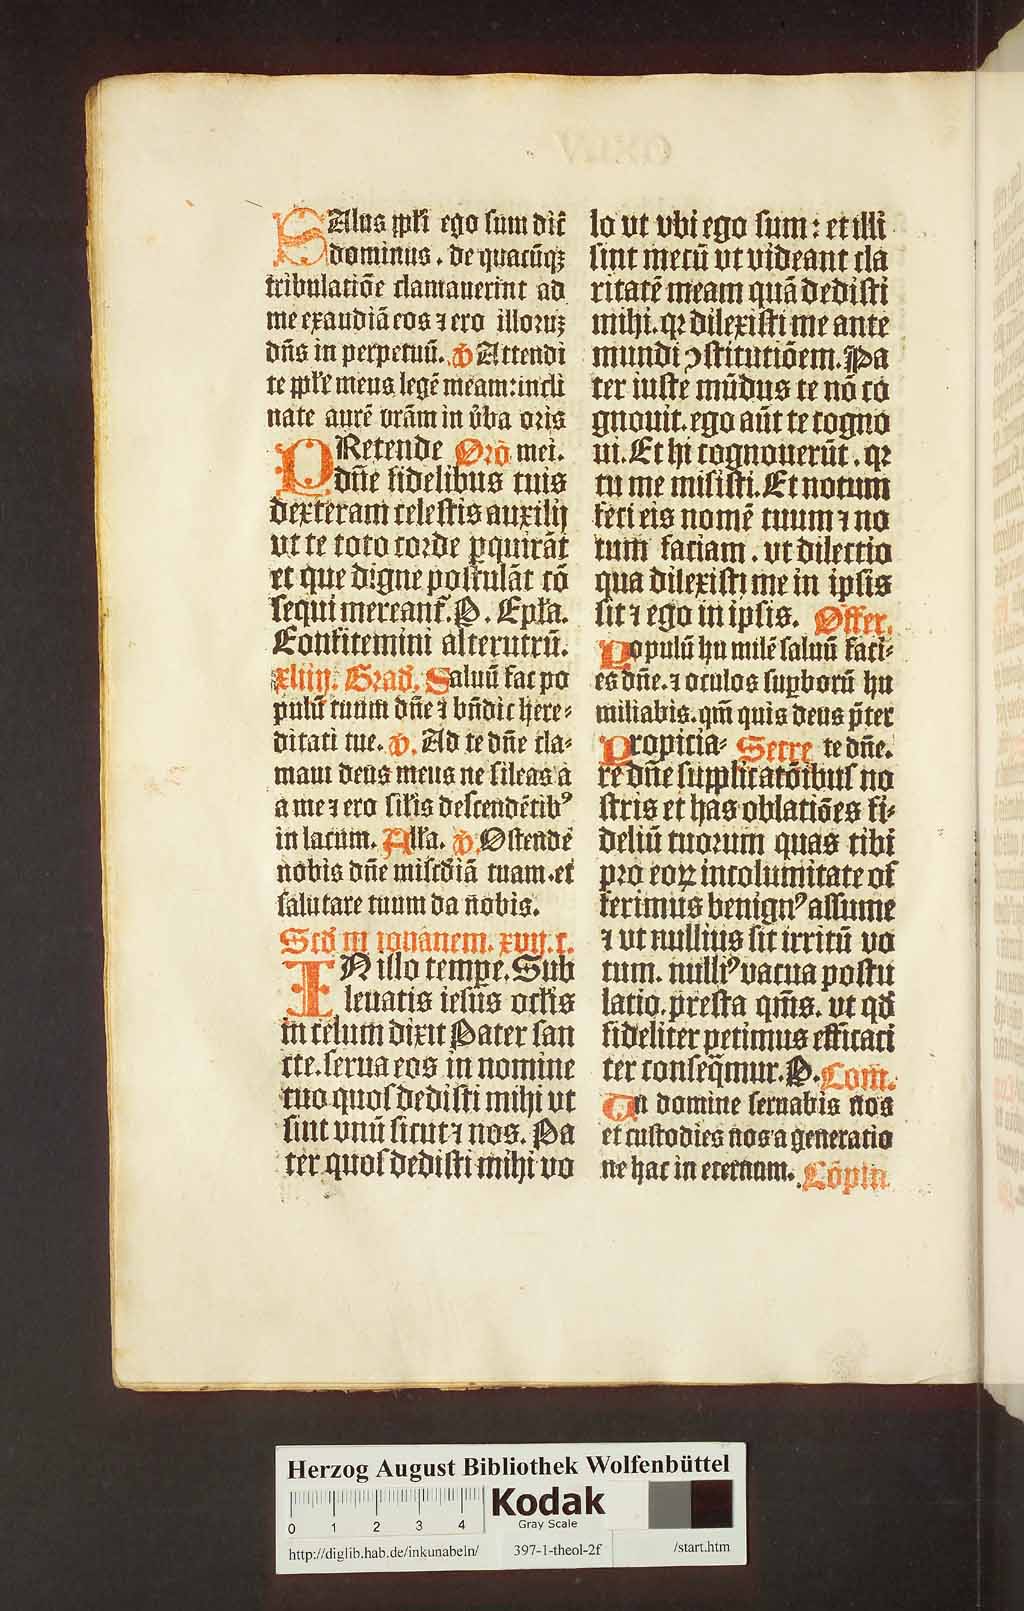 SAlus ppl'i ego sum dic̄
dominus . de quacūqꝫ
tribulatiōe clamauerint ad
me exaudiā eos ⁊ ero illoruꝫ
dn̄s in perpetuū. v̄ Attendi
te pp̄le meus legē meam: incli
nate aurē vrām in v̄ba oris
PRetende Orō mei.
dn̄e fidelibus tuis
dexteram celestis auxilij
vt te toto corde ꝑquirāt
et que digne postulāt cō
sequi mereant᷑. P. Epl'a.
Confitemini alterutrū.
xliiij. Grad̄. Saluū fac po
pulū tuum dn̄e ⁊ bn̄dic here-
ditati tue. v̄. Ad te dn̄e cla-
maui deus meus ne sileas a
a me ⁊ ero sil'is descendētibꝰ
in lacum. All'a. v̄. Ostende
nobis dn̄e misc̄diā tuam .et
salutare tuum da nobis.
Scd̄ m iohānem. xvij. c.
IN illo tempē. Sub
leuatis iesus ocl'is
in celum dixit Pater san
cte. serua eos in nomine
tuo quos dedisti mihi vt
sint vnū sicut ⁊ nos. Pa
ter quos dedisti mihi vo
lo vt vbi ego sum : et illi
sint mecū vt videant cla
ritatē meam quā dedisti
mihi. qꝛ dilexisti me ante
mundi ꝯstitutiōem. Pa
ter iuste mūdus te nō co
gnouit. ego aūt te cogno
ui. Et hi cognouerūt . qꝛ
tu me misisti. Et notum
feci eis nomē tuum ⁊ no
tum faciam . vt dilectio
qua dilexisti me in ipsis
sit ⁊ ego in ipsis. Offer.
Populū hu milē saluū faci-
es dn̄e. ⁊ oculos suꝑborū hu
miliabis. qm̄ quis deus p̄ter
Propicia- Secre te dn̄e.
re dn̄e supplicatōibus no
stris et has oblatiōes fi-
deliū tuorum quas tibi
pro eoꝝ incolumitate of
ferimus benignꝰ assume
⁊ vt nullius sit irritū vo
tum. nulliꝰ vacua postu
latio. presta qm̄s. vt qd̄
fideliter petimus efficaci
ter conseq̄mur. P. Com̄.
Tu domine seruabis nos
et custodies nos a generatio
ne hac in eternum. Cōpln
Herzog August Bibliothek Wolfenbüttel
0 1 2 3 4
Kodak
Gray Scale
http://diglib.hab.de/inkunabeln/ 397-1-theol-2f /start.htm